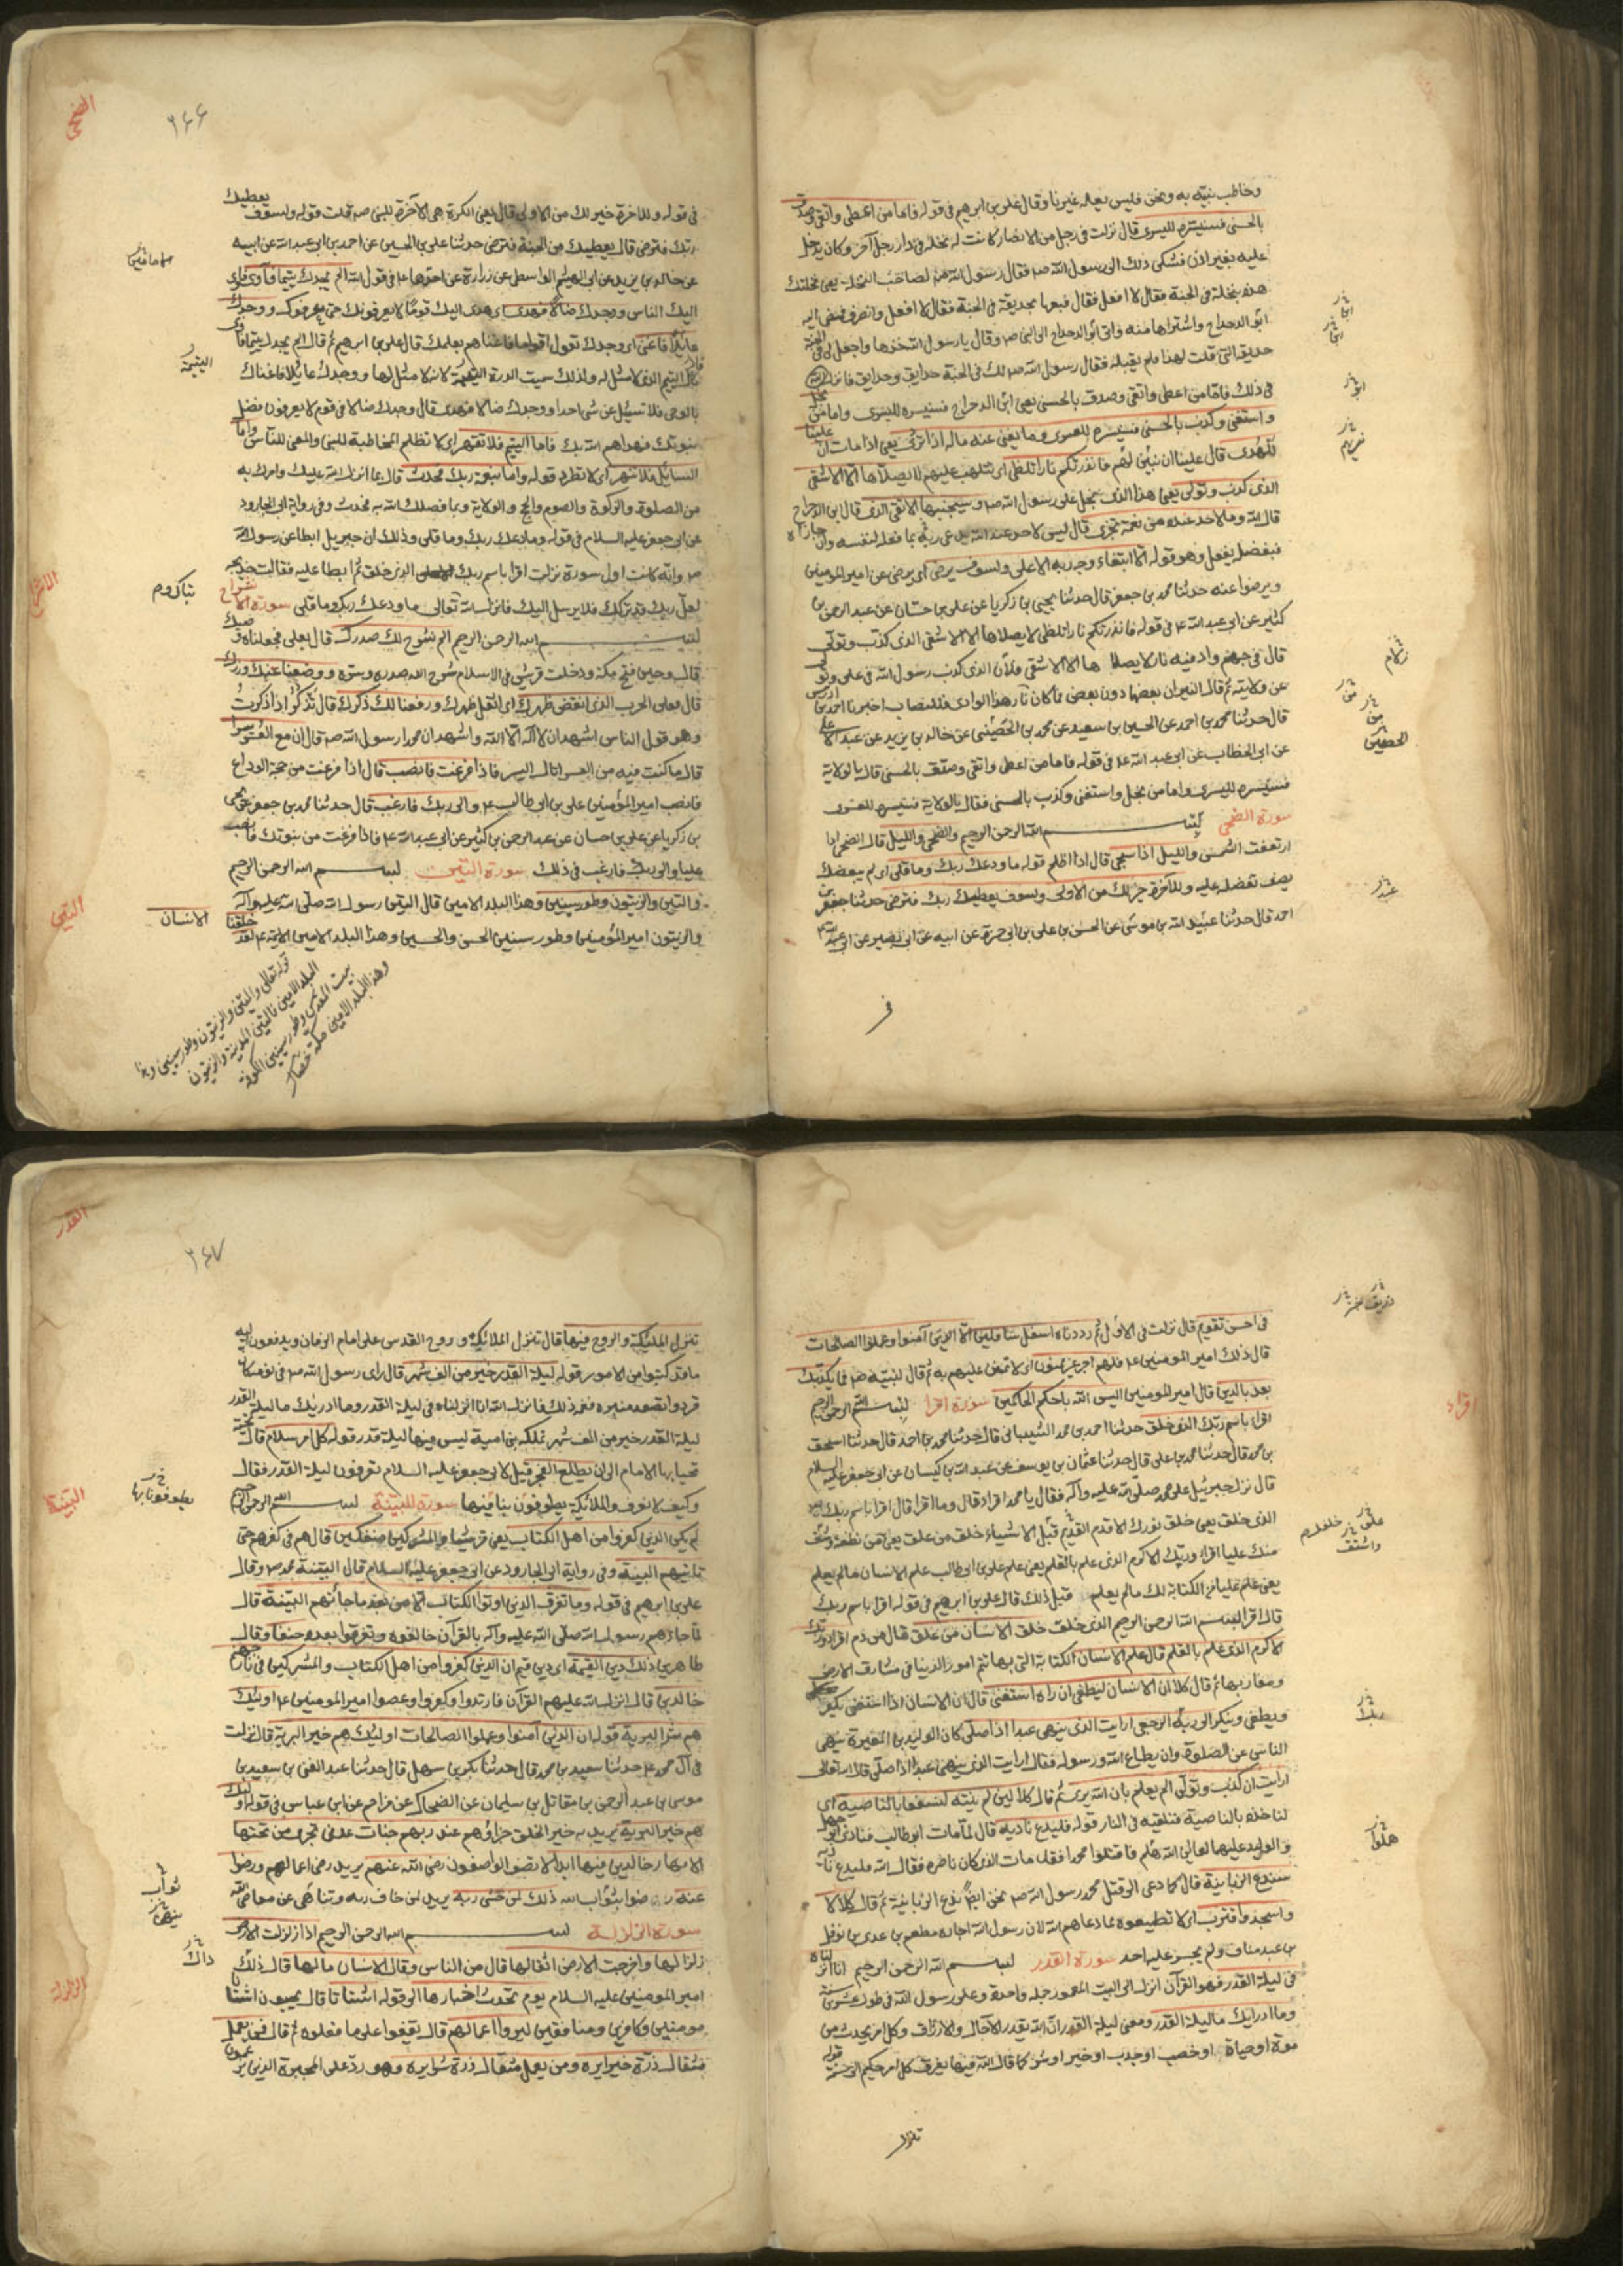 وخاطب نبيّه به ونحن فليس يعلمه غيرنا وقال علي بن ابرهيم في قوله فاما من اعطى واتقى وصدق
بالحسنى فسنيسره لليسرى قال نزلت في رجل من الانصار كانت له نخلة في دار رجل آخر وكان يدخل
عليه بغير اذن فشكى ذلك الى رسول الله صم فقال رسول الله صم لصاحب النخلة بعني نخلتك
هذه بنخلة في الجنة فقال لا افعل فقال فبعها بحديقة في الجنة فقال لا افعل وانصرف فمضى اليه
ابو الدحداح واشتراها منه واتى ابو الدحداح الى النبي صم وقال يا رسول الله خذها واجعل لي في الجنة
حديقة التي قلت لهذا فلم يقبله فقال رسول الله صم لك في الجنة حدايق وحدايق فانزل الله
في ذلك فاما من اعطى واتقى وصدق بالحسنى يعني ابي الدحداح فسنيسره لليسرى واما من بخل
واستغنى وكذب بالحسنى فسنيسره للعسرى وما يغني عنه ماله اذا تردى يعني اذا مات ان علينا
للهدى قال علينا ان نبين لهم فانذرتكم نارا تلظى اى تتلهب عليهم لا يصلاها الا الاشقى
الذي كذب وتولى يعني هذا الذي بخل على رسول الله صم وسيجنبها الاتقى الذي قال ابي الدحداح
قال الله وما لاحد عنده من نعمة تجزى قال ليس لاحد عند الله يدعي ربه بما فعله لنفسه وان جازاه
فبفضل يفعل وهو قوله الا ابتغاء وجه ربه الاعلى ولسوف يرضى اى يرضى عن امير المؤمنين
ويرضوا عنه حدثنا محمد بن جعفر قال حدثنا يحيى بن زكريا عن علي بن حسّان عن عبد الرحمن بن
كثير عن ابي عبد الله ع في قوله فانذرتكم نارا تلظى لا يصلاها الا الاشقى الذي كذب وتولى
قال في جهنم واد فيه نار لا يصلاها الا الاشقى فلان الذي كذب رسول الله في علي وتولى
عن ولايته ثم قال النيران بعضها دون بعض فما كان نار هذا الوادي فللنصاب اخبرنا احمد بن ادريس
قال حدثنا محمد بن احمد عن الحسين بن سعيد عن محمد بن الحصيني عن خالد بن يزيد عن عبد الاعلى
عن ابي الخطاب عن ابي عبد الله ع في قوله فاما من اعطى واتقى وصدق بالحسنى قال بالولاية
فسنيسره لليسرى واما من بخل واستغنى وكذب بالحسنى فقال بالولاية فسنيسره للعسرى
سورة الضحى بسم الله الرحمن الرحيم والضحى والليل قال الضحى اذا
ارتفعت الشمس والليل اذا سجى قال اذا اظلم قوله ما ودعك ربك وما قلى اى لم يبغضك
يصف تفضله عليه وللآخرة خير لك من الاولى ولسوف يعطيك ربك فترضى حدثنا جعفر بن
احمد قال حدثنا عبيد الله بن موسى عن الحسن بن علي بن ابي حمزة عن ابيه عن ابي بصير عن ابي عبد الله ع
ابو
الحصين
عبد
في
الضحى
٢٤٤
في قوله وللآخرة خير لك من الاولى قال يعني الكرة هي الآخرة للنبي صم قلت قوله ولسوف يعطيك
ربك فترضى قال يعطيك من الجنة فترضى حدثنا علي بن الحسين عن احمد بن ابي عبد الله عن ابيه
عن خالد بن يزيد عن ابي الهيثم الواسطي عن زرارة عن احدهما ع في قول الله الم يجدك يتيما فآوى فاوى
اليك الناس ووجدك ضالا فهدى اى هدى اليك قوما لا يعرفونك حتى عرفوك ووجدك
عايلا فاغنى اى وجدك تعول اقواما فاغناهم بعلمك قال علي بن ابرهيم ثم قال الم يجدك يتيما فآوى
قال اليتيم الذي لا مثل له ولذلك سميت الدرة اليتيمة لانه لا مثل لها ووجدك عايلا فاغناك
بالوحي فلا تسئل عن شى احدا ووجدك ضالا فهدى قال وجدك ضالا في قوم لا يعرفون فضل
نبوتك فهداهم الله بك فاما اليتيم فلا تقهر اى لا تظلم المخاطبة للنبي والمعنى للناس واما
السائل فلا تنهر اى لا تطرد قوله واما بنعمة ربك فحدث قال بما انزل الله عليك وامرك به
من الصلوة والزكوة والصوم والحج والولاية وبما فضلك الله به فحدث وفي رواية ابي الجارود
عن ابي جعفر عليه السلام في قوله وما ودعك ربك وما قلى وذلك ان جبريل ابطا عن رسول الله
صم وانه كانت اول سورة نزلت اقرا باسم ربك الذي خلق ثم ابطا عليه فقالت خديجه
لعل ربك قد تركك فلا يرسل اليك فانزل الله تعالى ما ودعك ربك وما قلى سورة الانشراح
بسم الله الرحمن الرحيم الم نشرح لك صدرك قال بعلي فجعلناه وصيك
قال وحين فتح مكة ودخلت قريش في الاسلام شرح الله صدره وسرّه ووضعنا عنك وزرك
قال بعلي الحرب الذي انقض ظهرك اى اثقل ظهرك ورفعنا لك ذكرك قال تذكر اذا ذكرت
وهو قول الناس اشهد ان لا اله الا الله واشهد ان محمدا رسول الله صم قال ان مع العسر يسرا
قال ما كنت فيه من العسر اتاك اليسر فاذا فرغت فانصب قال اذا فرغت من حجة الوداع
فانصب امير المؤمنين علي بن ابي طالب ع والى ربك فارغب قال حدثنا محمد بن جعفر عن يحيى
بن زكريا عن علي بن حسان عن عبد الرحمن بن كثير عن ابي عبد الله ع فاذا فرغت من نبوتك فانصب
عليا والى ربك فارغب في ذلك سورة التين بسم الله الرحمن الرحيم
والتين والزيتون وطور سينين وهذا البلد الامين قال التين رسول الله صلى الله عليه وآله
والزيتون امير المؤمنين وطور سينين الحسن والحسين وهذا البلد الامين الائمة ع لقد خلقنا
اليتيمة
الانشراح
التين
الانسان
قوله تعالى والتين والزيتون وطور سينين وهذا
البلد الامين فالتين المدينة والزيتون
بيت المقدس وطور سينين الكوفة
وهذا البلد الامين مكة خصال
في احسن تقويم قال نزلت في الاول ثم رددناه اسفل سافلين الا الذين آمنوا وعملوا الصالحات
قال ذلك امير المؤمنين ع فلهم اجر غير ممنون اى لا يمن عليهم به ثم قال لنبيّه صم فما يكذبك
بعد بالدين قال امير المؤمنين اليس الله باحكم الحاكمين سورة اقرا بسم الله الرحمن الرحيم
اقرا باسم ربك الذي خلق حدثنا احمد بن محمد الشيباني قال حدثنا محمد بن احمد قال حدثنا اسحق
بن محمد قال حدثنا محمد بن علي قال حدثنا عثمان بن يوسف عن عبد الله بن كيسان عن ابي جعفر عليه السلام
قال نزل جبرئيل على محمد صلى الله عليه وآله فقال يا محمد اقرا قال وما اقرا قال اقرا باسم ربك
الذي خلق يعني خلق نورك الاقدم القديم قبل الاشياء خلق من علق يعني من نطفة وشق
منك عليا اقرا وربك الاكرم الذي علم بالقلم يعني علم علي بن ابي طالب علم الانسان ما لم يعلم
يعني علم عليا من الكتابة لك ما لم يعلم قبل ذلك قال علي بن ابرهيم في قوله اقرا باسم ربك
قال اقرا بسم الله الرحمن الرحيم الذي خلق خلق الانسان من علق قال من دم اقرا وربك
الاكرم الذي علم بالقلم قال علم الانسان الكتابة التي بها تتم امور الدنيا في مشارق الارض
ومغاربها ثم قال كلا ان الانسان ليطغى ان راه استغنى قال ان الانسان اذا استغنى يكفر
ويطغى وينكر الى ربه الرجعى ارايت الذي ينهى عبدا اذا صلى كان الوليد بن المغيرة ينهى
الناس عن الصلوة وان يطاع الله ورسوله فقال ارايت الذي ينهى عبدا اذا صلى قال الله تعالى
ارايت ان كذب وتولى الم يعلم بان الله يرى ثم قال كلا لين لم ينته لنسفعا بالناصية اى
لناخذه بالناصية فنلقيه في النار قوله فليدع ناديه قال لما مات ابو طالب فنادى ابو جهل
والوليد عليهما لعاين الله هلم فاقتلوا محمدا فقد مات الذي كان ناصره فقال الله فليدع ناديه
سندع الزبانية قال كما دعى الى قتل محمد رسول الله صم نحن ايضا ندع الزبانية ثم قال كلا لا
واسجد واقترب اى لا تطيعوه لما دعاهم اليه لان رسول الله اجاره مطعم بن عدي بن نوفل
بن عبد مناف ولم يجسر عليه احد سورة القدر بسم الله الرحمن الرحيم انا انزلناه
في ليلة القدر فهو القرآن انزل الى البيت المعمور جملة واحدة وعلى رسول الله في طول عشرين سنة
وما ادرايك ما ليلة القدر ومعنى ليلة القدر ان الله يقدر الآجال والارزاق وكل امر يحدث من
موت او حياة او خصب او جدب او خير او شر كما قال الله فيها يفرق كل امر حكيم الى سنة قوله
اقراء
هلموا
تنزل
القدر
٢٤٧
تنزل الملئكة والروح فيها قال تنزل الملائيكة وروح القدس على امام الزمان ويدفعون اليه
ما قد كتبوا من الامور قوله ليلة القدر خير من الف شهر قال راى رسول الله صم في نومه كان
قردوا تصعد منبره فغمه ذلك فانزل الله انا انزلناه في ليلة القدر وما ادريك ما ليلة القدر
ليلة القدر خير من الف شهر تملكه بني امية ليس فيها ليلة قدر قوله كل امر سلام قال تحية
تحيا بها الامام الى ان يطلع الفجر قيل لابي جعفر عليه السلام تعرفون ليلة القدر فقال
وكيف لا نعرف والملائكة يطوفون بنا فيها سورة البينة بسم الله الرحمن الرحيم
لم يكن الذين كفروا من اهل الكتاب يعني قريشا والمشركين منفكين قال هم في كفرهم حتى
تاتيهم البينة وفي رواية ابي الجارود عن ابي جعفر عليه السلام قال البينة محمد صم وقال
علي بن ابرهيم في قوله وما تفرق الذين اوتوا الكتاب الا من بعد ما جائتهم البينة قال
لما جاءهم رسول الله صلى الله عليه وآله بالقرآن خالفوه وتفرقوا بعده حنفآء قال
طاهرين ذلك دين القيمة اى دين قيم ان الذين كفروا من اهل الكتاب والمشركين في نار جهنم
خالدين قال انزل الله عليهم القرآن فارتدوا وكفروا وعصوا امير المؤمنين ع اوليك
هم شر البرية قوله ان الذين آمنوا وعملوا الصالحات اوليك هم خير البرية قال نزلت
في آل محمد ع حدثنا سعيد بن محمد قال حدثنا بكر بن سهل قال حدثنا عبد الغني بن سعيد بن
موسى بن عبد الرحمن بن مقاتل بن سليمان عن الضحاك عن مزاحم عن ابن عباس في قوله اوليك
هم خير البرية يريد به خير الخلق جزاؤهم عند ربهم جنات عدن تجري من تحتها
الانهار خالدين فيها ابدا لا يصف الواصفون رضى الله عنهم يريد رضى اعمالهم ورضوا
عنه رضوا بثواب الله ذلك لمن خشى ربه يريد لمن خاف ربه وتناهى عن معاصي الله
سورة الزلزلة بسم الله الرحمن الرحيم اذا زلزلت الارض
زلزالها واخرجت الارض اثقالها قال من الناس وقال الانسان مالها قال ذلك
امير المؤمنين عليه السلام يوم تحدث اخبارها الى قوله اشتاتا قال يجيبون اشتاتا
مومنين وكافرين ومنافقين ليروا اعمالهم قال يقفوا على ما فعلوه ثم قال فمن يعمل
مثقال ذرة خيرا يره ومن يعمل مثقال ذرة شرا يره وهو رد على المجبرة الذين يزعمون
يطوفون بها
البينة
ثواب
ذاك
الزلزلة